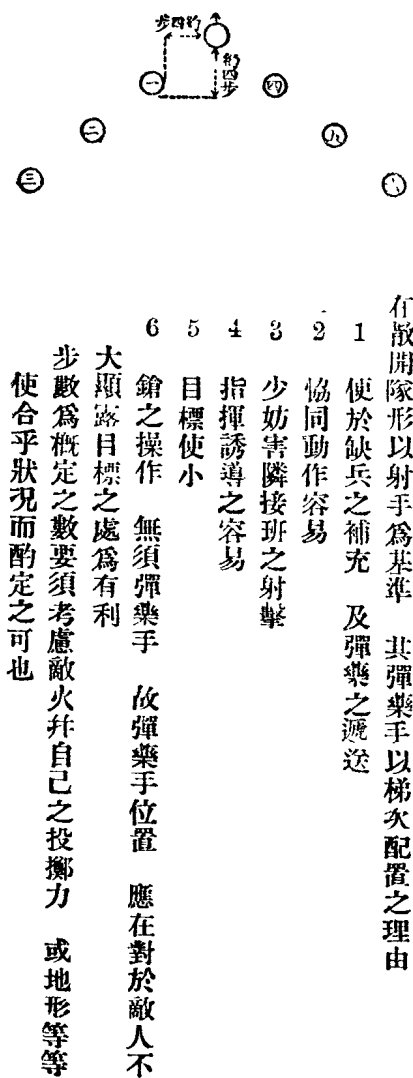 約四步
約四步
一
四
二
五
三
六
在散開隊形以射手爲基準　其彈藥手以梯次配置之理由
1　便於缺兵之補充　及彈藥之遞送
2　協同動作容易
3　少妨害隣接班之射擊
4　指揮誘導之容易
5　目標使小
6　鎗之操作　無須彈藥手　故彈藥手位置　應在對於敵人不
大顯露目標之處爲有利
步數爲槪定之數要須考慮敵火幷自己之投擲力　或地形等等
使合乎狀況而酌定之可也